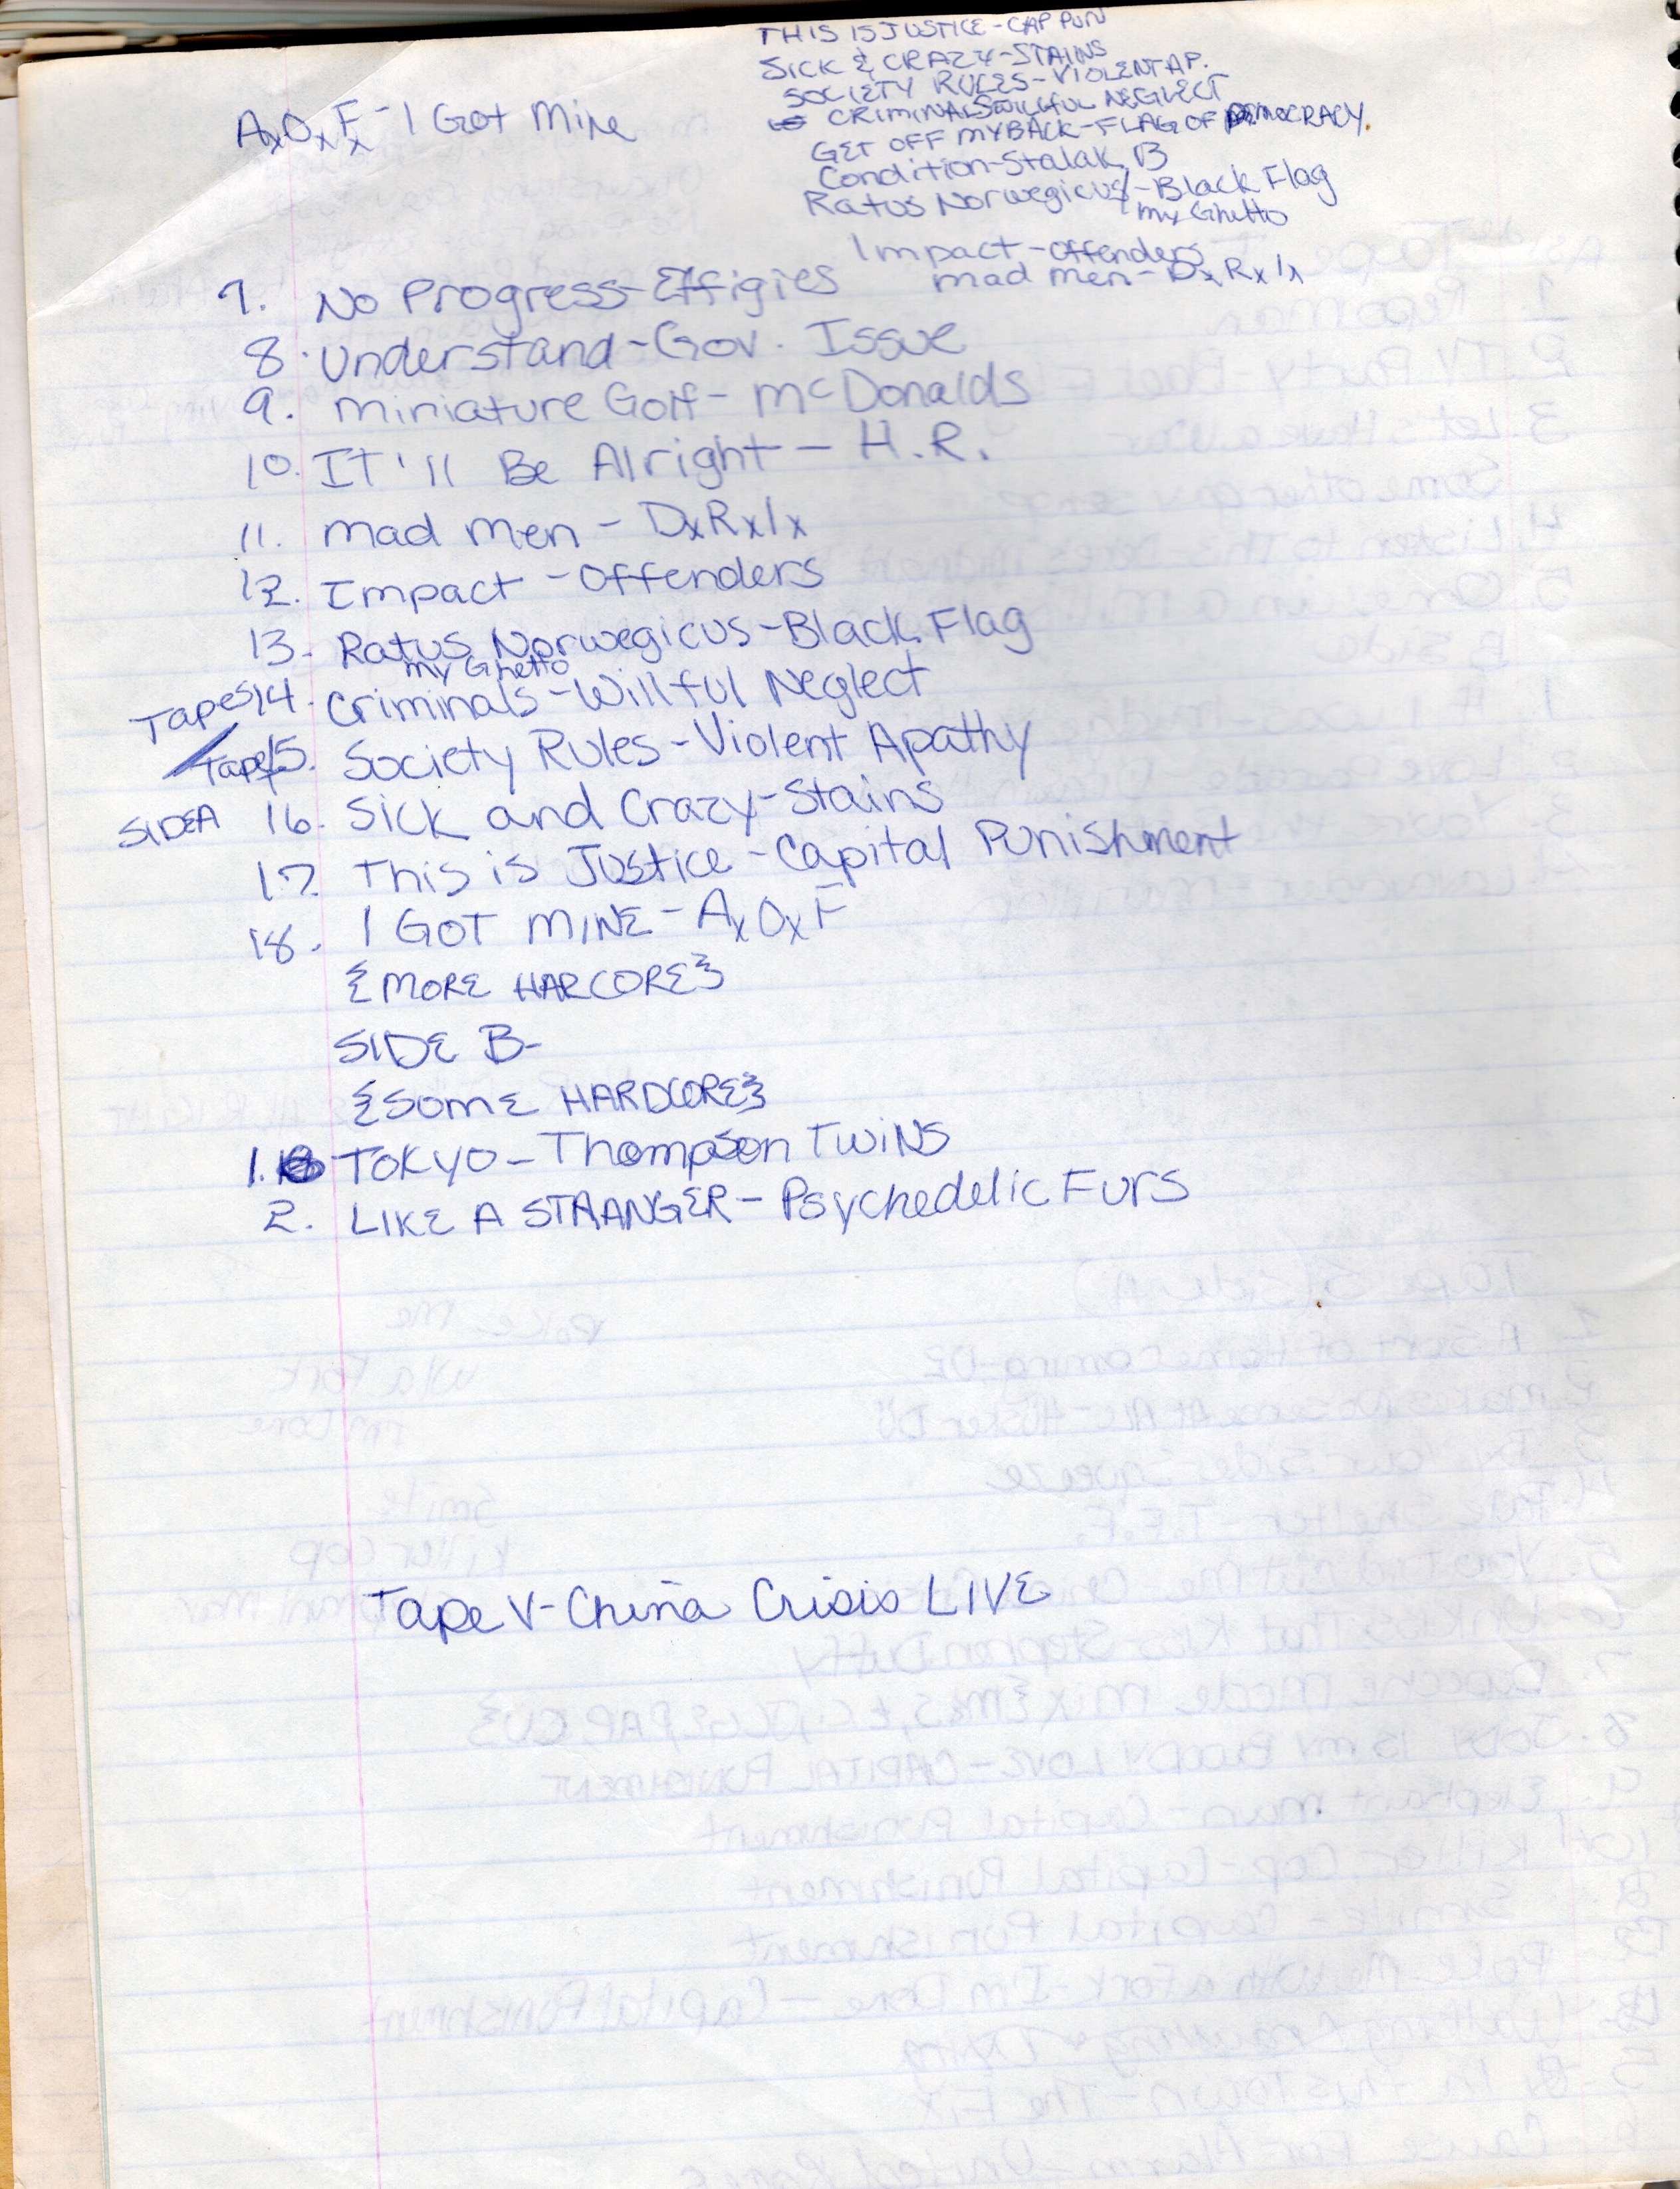 THIS IS JUSTICE - CAP PUN
SICK & CRAZY - STAINS
SOCIETY RULES - VIOLENT AP.
CRIMINALS WILLFUL NEGLECT
GET OFF MY BACK - FLAG OF DEMOCRACY.
Condition - Stalak B
Ratus Norwegicus - Black Flag
my Ghetto
Impact - Offenders
mad men - DxRxIx
AxOxFx - I Got Mine
7. No Progress - Effigies
8. Understand - Gov. Issue
9. Miniature Golf - McDonalds
10. IT'll Be Alright - H.R.
11. mad men - DxRxIx
12. Impact - Offenders
13. Ratus Norwegicus - Black Flag
my Ghetto
Tapes 14. Criminals - Willful Neglect
Tape 15. Society Rules - Violent Apathy
SIDE A 16. Sick and Crazy - Stains
17. This is Justice - Capital Punishment
18. I GOT MINE - AxOxF
{MORE HARCORE}
SIDE B-
{SOME HARDCORE}
1. TOKYO - Thompson TWINS
2. LIKE A STRANGER - Psychedelic Furs
Tape V - China Crisis LIVE